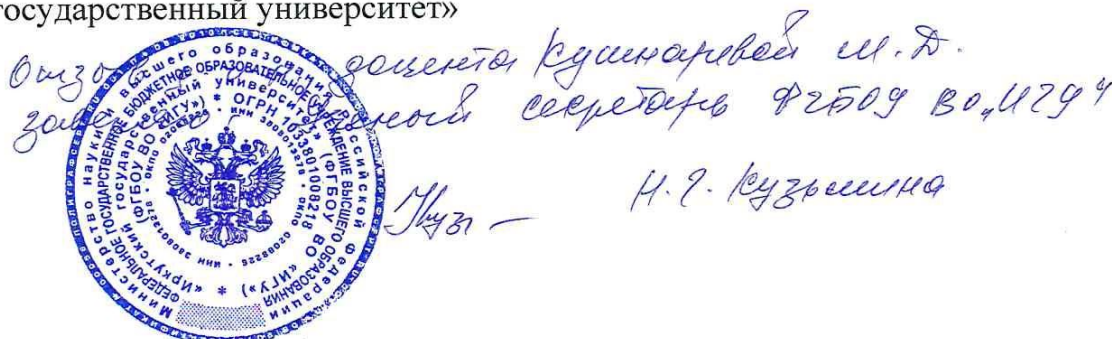 государственный университет»
доцента Кушнаревой М. Д.
секретарь ФГБОУ ВО „ИГУ“
Н. Г. Кузьмина
Министерство науки высшего образования Российской Федерации
ФЕДЕРАЛЬНОЕ ГОСУДАРСТВЕННОЕ БЮДЖЕТНОЕ ОБРАЗОВАТЕЛЬНОЕ УЧРЕЖДЕНИЕ ВЫСШЕГО ОБРАЗОВАНИЯ
«Иркутский государственный университет» (ФГБОУ ВО «ИГУ») * ОГРН 1033801008218
(ФГБОУ ВО «ИГУ») *
ИНН 3808013278 * ОКПО 02068226